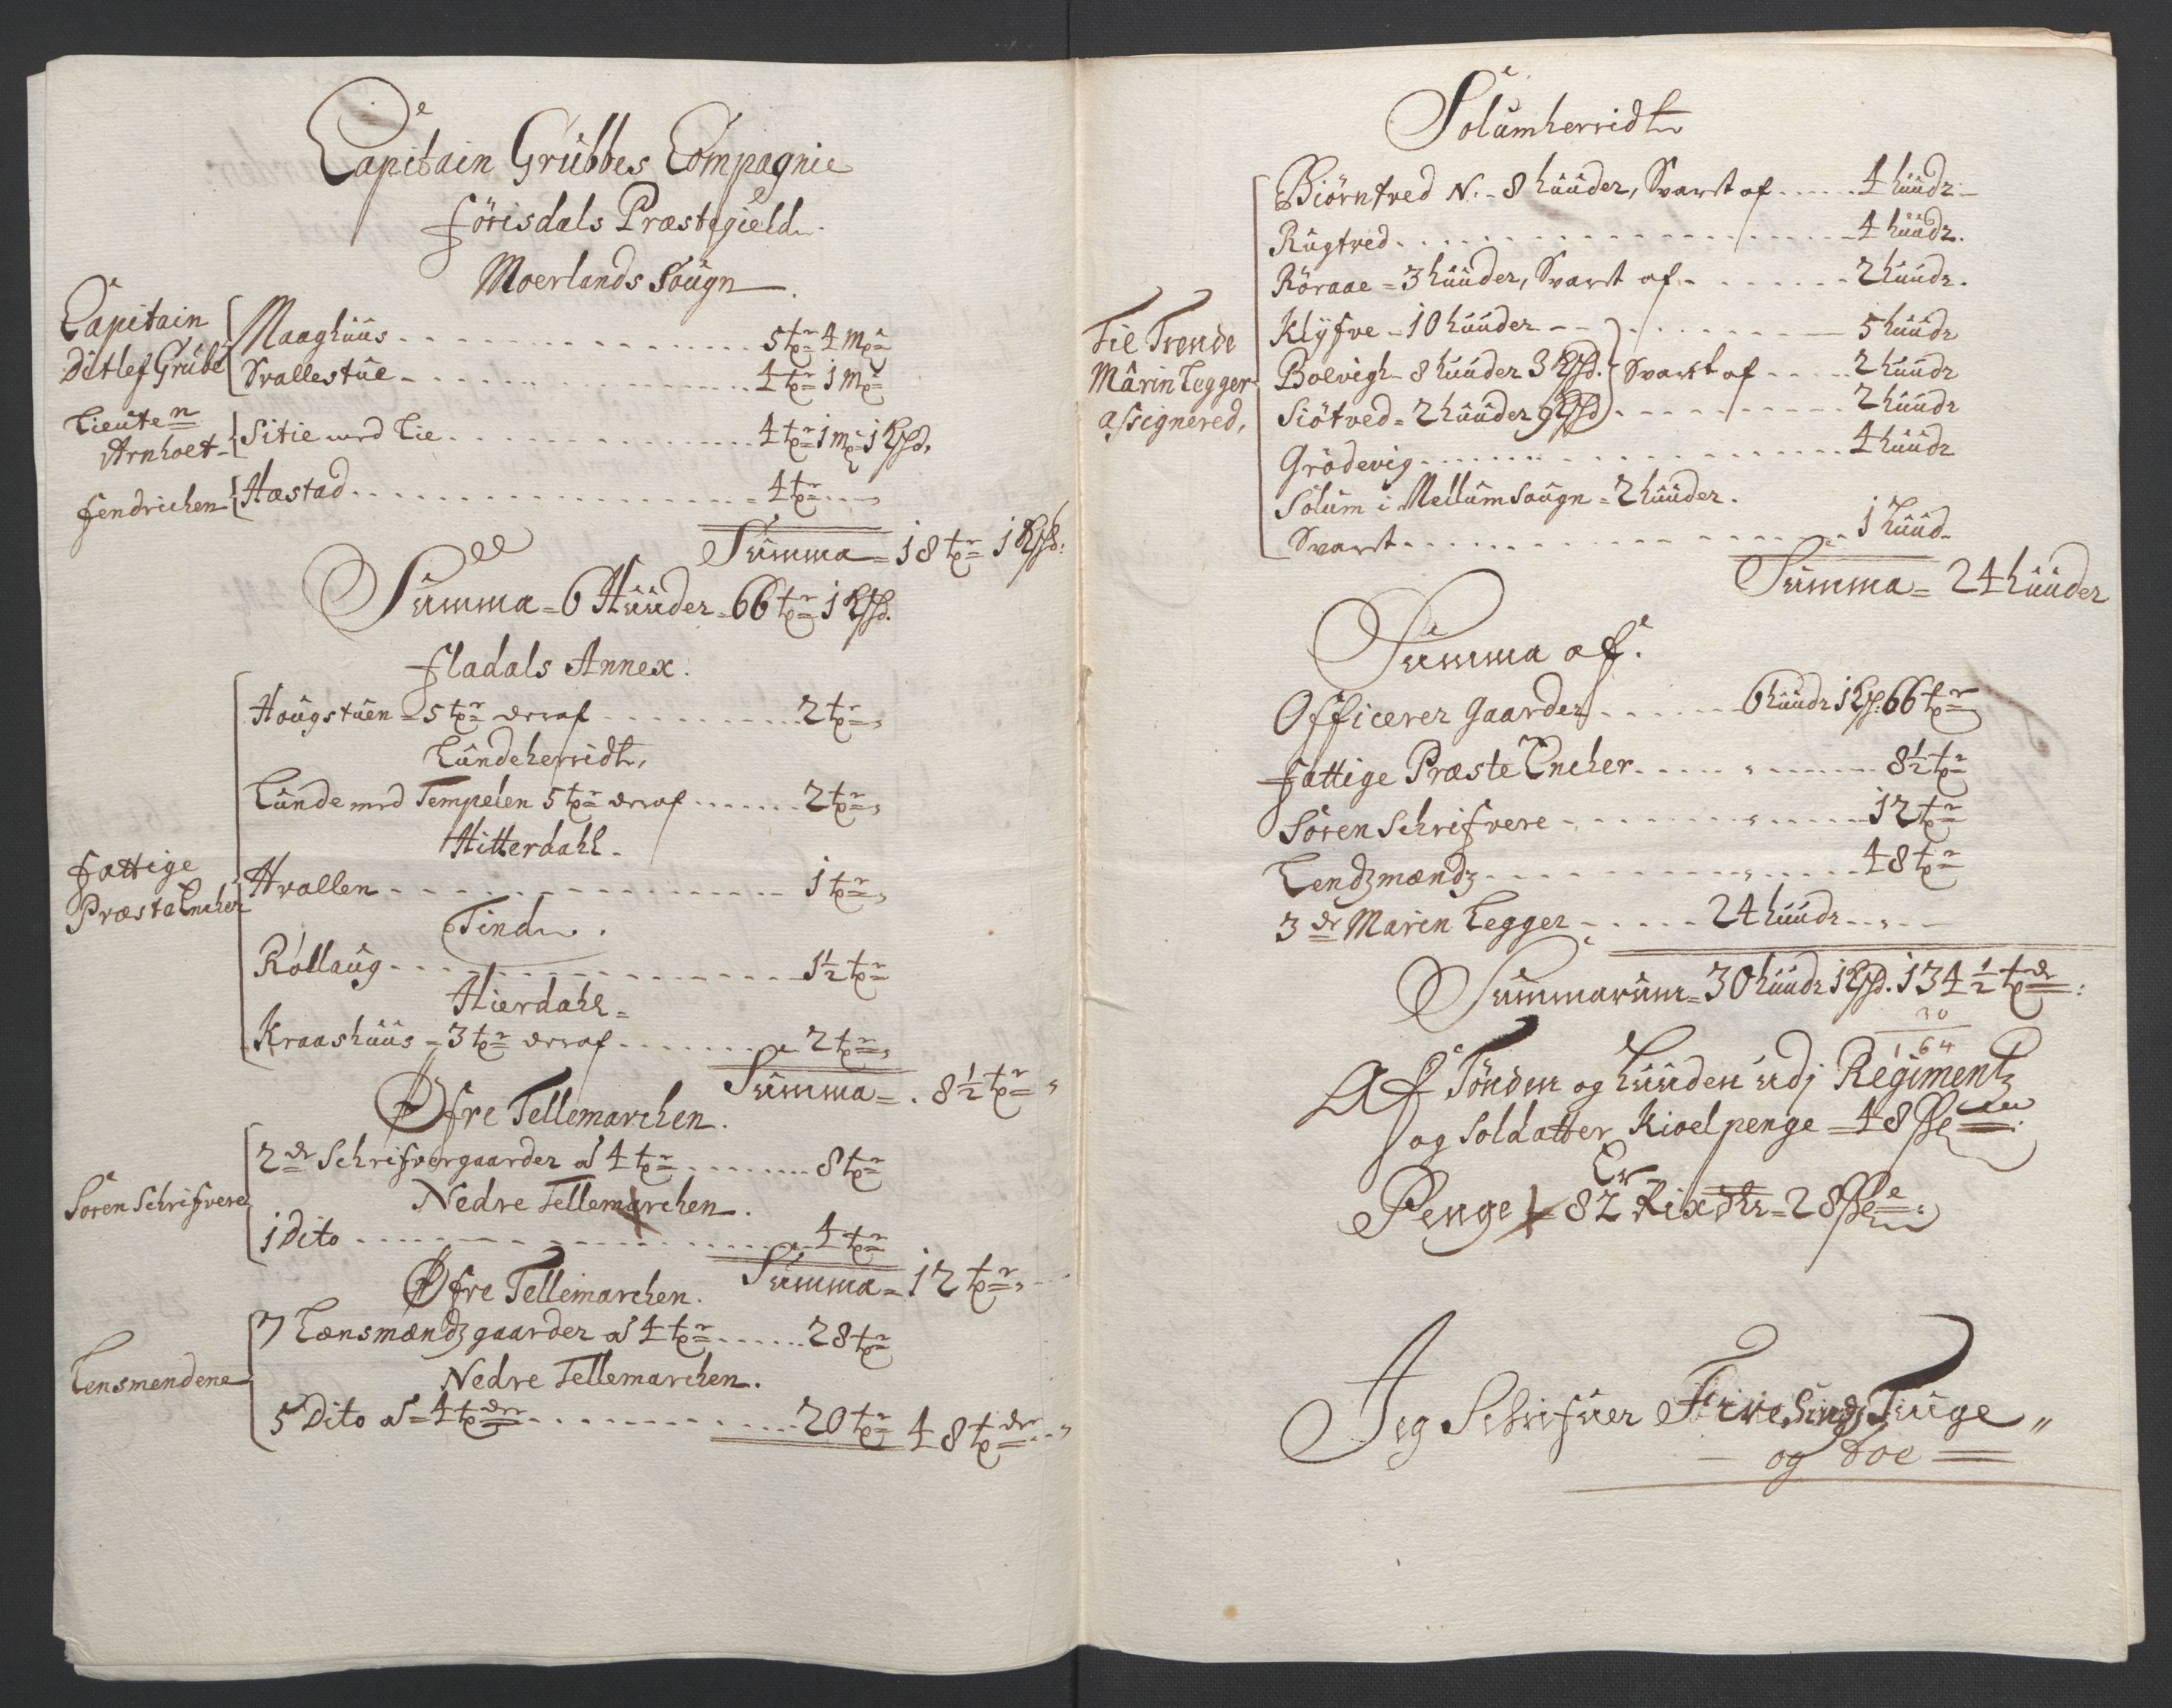 Capitain Grubbes Compagnie
förisdals Præstegield
Moerlands Sougn
Capitain
Ditlef Grube
Maaghuus 5 tpr 4 mp
Svallestue 4 tpr 1 mp
Lieuten
Arnhoet
Sitie med Lie 4 tpr 1 mp 1 Kpd.
fendrichen
Hæstad 4 tpr
Summa = 18 tpr 1 Kpd:
Summa = 6 Huuder = 66 tpr 1 Kpd.
fladals Annex.
Hougstuen = 5 tpr deraf 2 tpr
Lundeherridt,
Lunde med Tempelen 5 tpr deraf 2 tpr
Hitterdahl.
fattige
Præste Encher
Hvallen 1 tpr
Tind.
Rollaug 1½ tpr
Hierdahl =
Kraashuus = 3 tpr deraf 2 tpr
Summa = 8½ tpr
Øfre Tellemarchen.
Soren Schrifvere
2de Schrifvergaarder a 4 tpr 8 tpr
Nedre Tellemarchen.
1 Dito 4 tpr
Summa = 12 tpr
Øfre Tellemarchen.
Lensmendene
7 Lænsmændz gaarder a 4 tpr 28 tpr
Nedre Tellemarchen.
5 Dito a = 4 tpder 20 tpr 48 tpder
Solumherridt
Biörntved N. - 8 huuder, Svarst af 4 huudr
Rugtved 4 huudr.
Röraae = 3 huuder, Svarst af 2 huudr.
Til Trende
Marin Legger
assignered,
Klÿfve - 10 huuder 5 huudr
Bolvigh - 8 huuder 3 Kpd. Svarst af 2 huudr
Siötved = 2 huuder 9 Kpd 2 huudr
Grödevig 4 huudr
Solum i Mellum Sougn = 2 huuder.
Svarst 1 huud
Summa = 24 huuder
Summa af.
Officerer gaarder 6 huudr 1 Kp. 66 tpr
fattige Præste Encher 8½ tpr
Soren Schrifvere 12 tpr
Lendzmændz 48 tpr
3de Marin Legger 24 huudr
Summarum = 30 huudr 1 Kpd. 134½ tpdr:
30
164
Af Tönden og huuden udj Regimentz
og Soldatter Kioelpenge = 48 se
Er
Penge = 82 Rixdlr = 28 se
Jeg Schrifuer Fire Sindz Tiuge
og toe